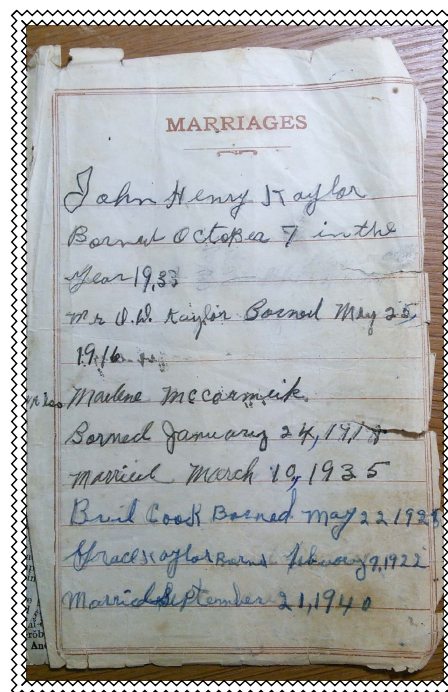 MARRIAGES
John Henry Kaylor
Borned October 7 in the
Year 1933
Mr O.D. Kaylor Borned May 25,
1916
Marlene McCormeik
Borned January 24, 1918
Married March 10, 1935
Cook Borned May 22 192
Grace Kaylor Borned February 7, 1922
Married September 21, 1940